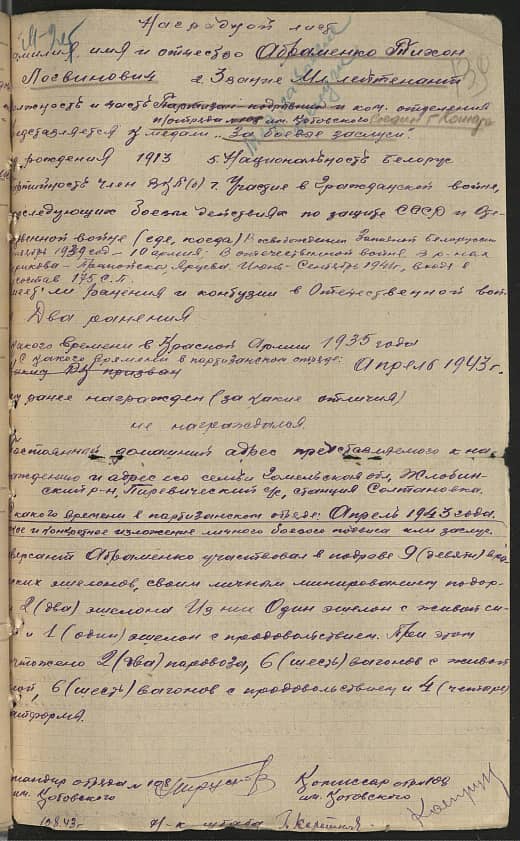 Наградной лист
амилия имя и отчество Абраменко Тихон
Логвинович 2. Звание Мл лейтенант
лжность и часть Партизан-подрывник и ком. отделения
п/отряда № 108 им. Котовского Соедин. г. Кошар
едставляется к медали „За боевые заслуги"
д рождения 1913 5. Национальность белорус
ртийность член ВКП(б) 7. Участие в Гражданской войне,
последующих боевых действиях по защите СССР и Оте-
ственной войне (где, когда) В освобождении Западной Белоруссии
1939 год – 10 армия; В отечественной войне в р-нах
Июнь-Сентябрь 1941г, в
состав 175 С.П.
меет ли ранения и контузии в Отечественной вой
Два ранения
какого времени в Красной Армии 1935 года
С какого времени в партизанском отряде: Апрель 1943 г.
РВК призван
м ранее награжден (за какие отличия)
не награждался.
Постоянный домашний адрес представляемого к на-
раждению и адрес его семьи Гомельская обл, Жлобин-
ский р-н, Пиревический с/с, станция Солтановка.
какого времени в партизанском отряде: Апрель 1943 года.
ное и конкретное изложение личного боевого подвига или заслуг.
версант Абраменко участвовал в подрыве 9 (девяти) вра-
ских эшелонов, своим личным минированием подор-
л 2 (два) эшелона Из них Один эшелон с живой си-
й и 1 (один) эшелон с продовольствием. При этом
чтожено 2 (два) паровоза, 6 (шесть) вагонов с живой
лой, 6 (шесть) вагонов с продовольствием и 4 (четыре)
атформы.
мандир отряда № 108 Комиссар отр. 108
им. Котовского им. Котовского
Н-к штаба